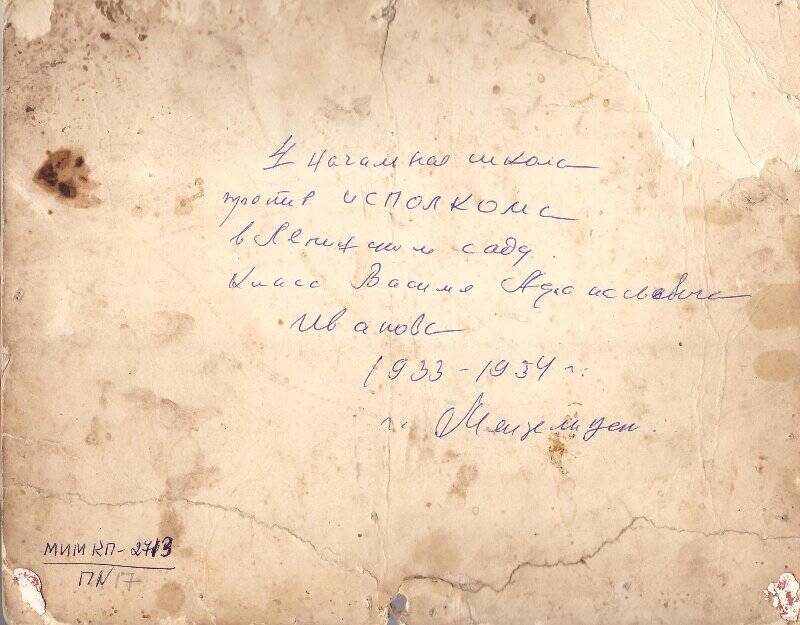 1 начальная школа
против исполкома
в Ленинском саду.
класс Василия Афанасьевича
Иванова
1933-1934 г.
г. Мензелинск
МИМ КП-2713
ПN 17